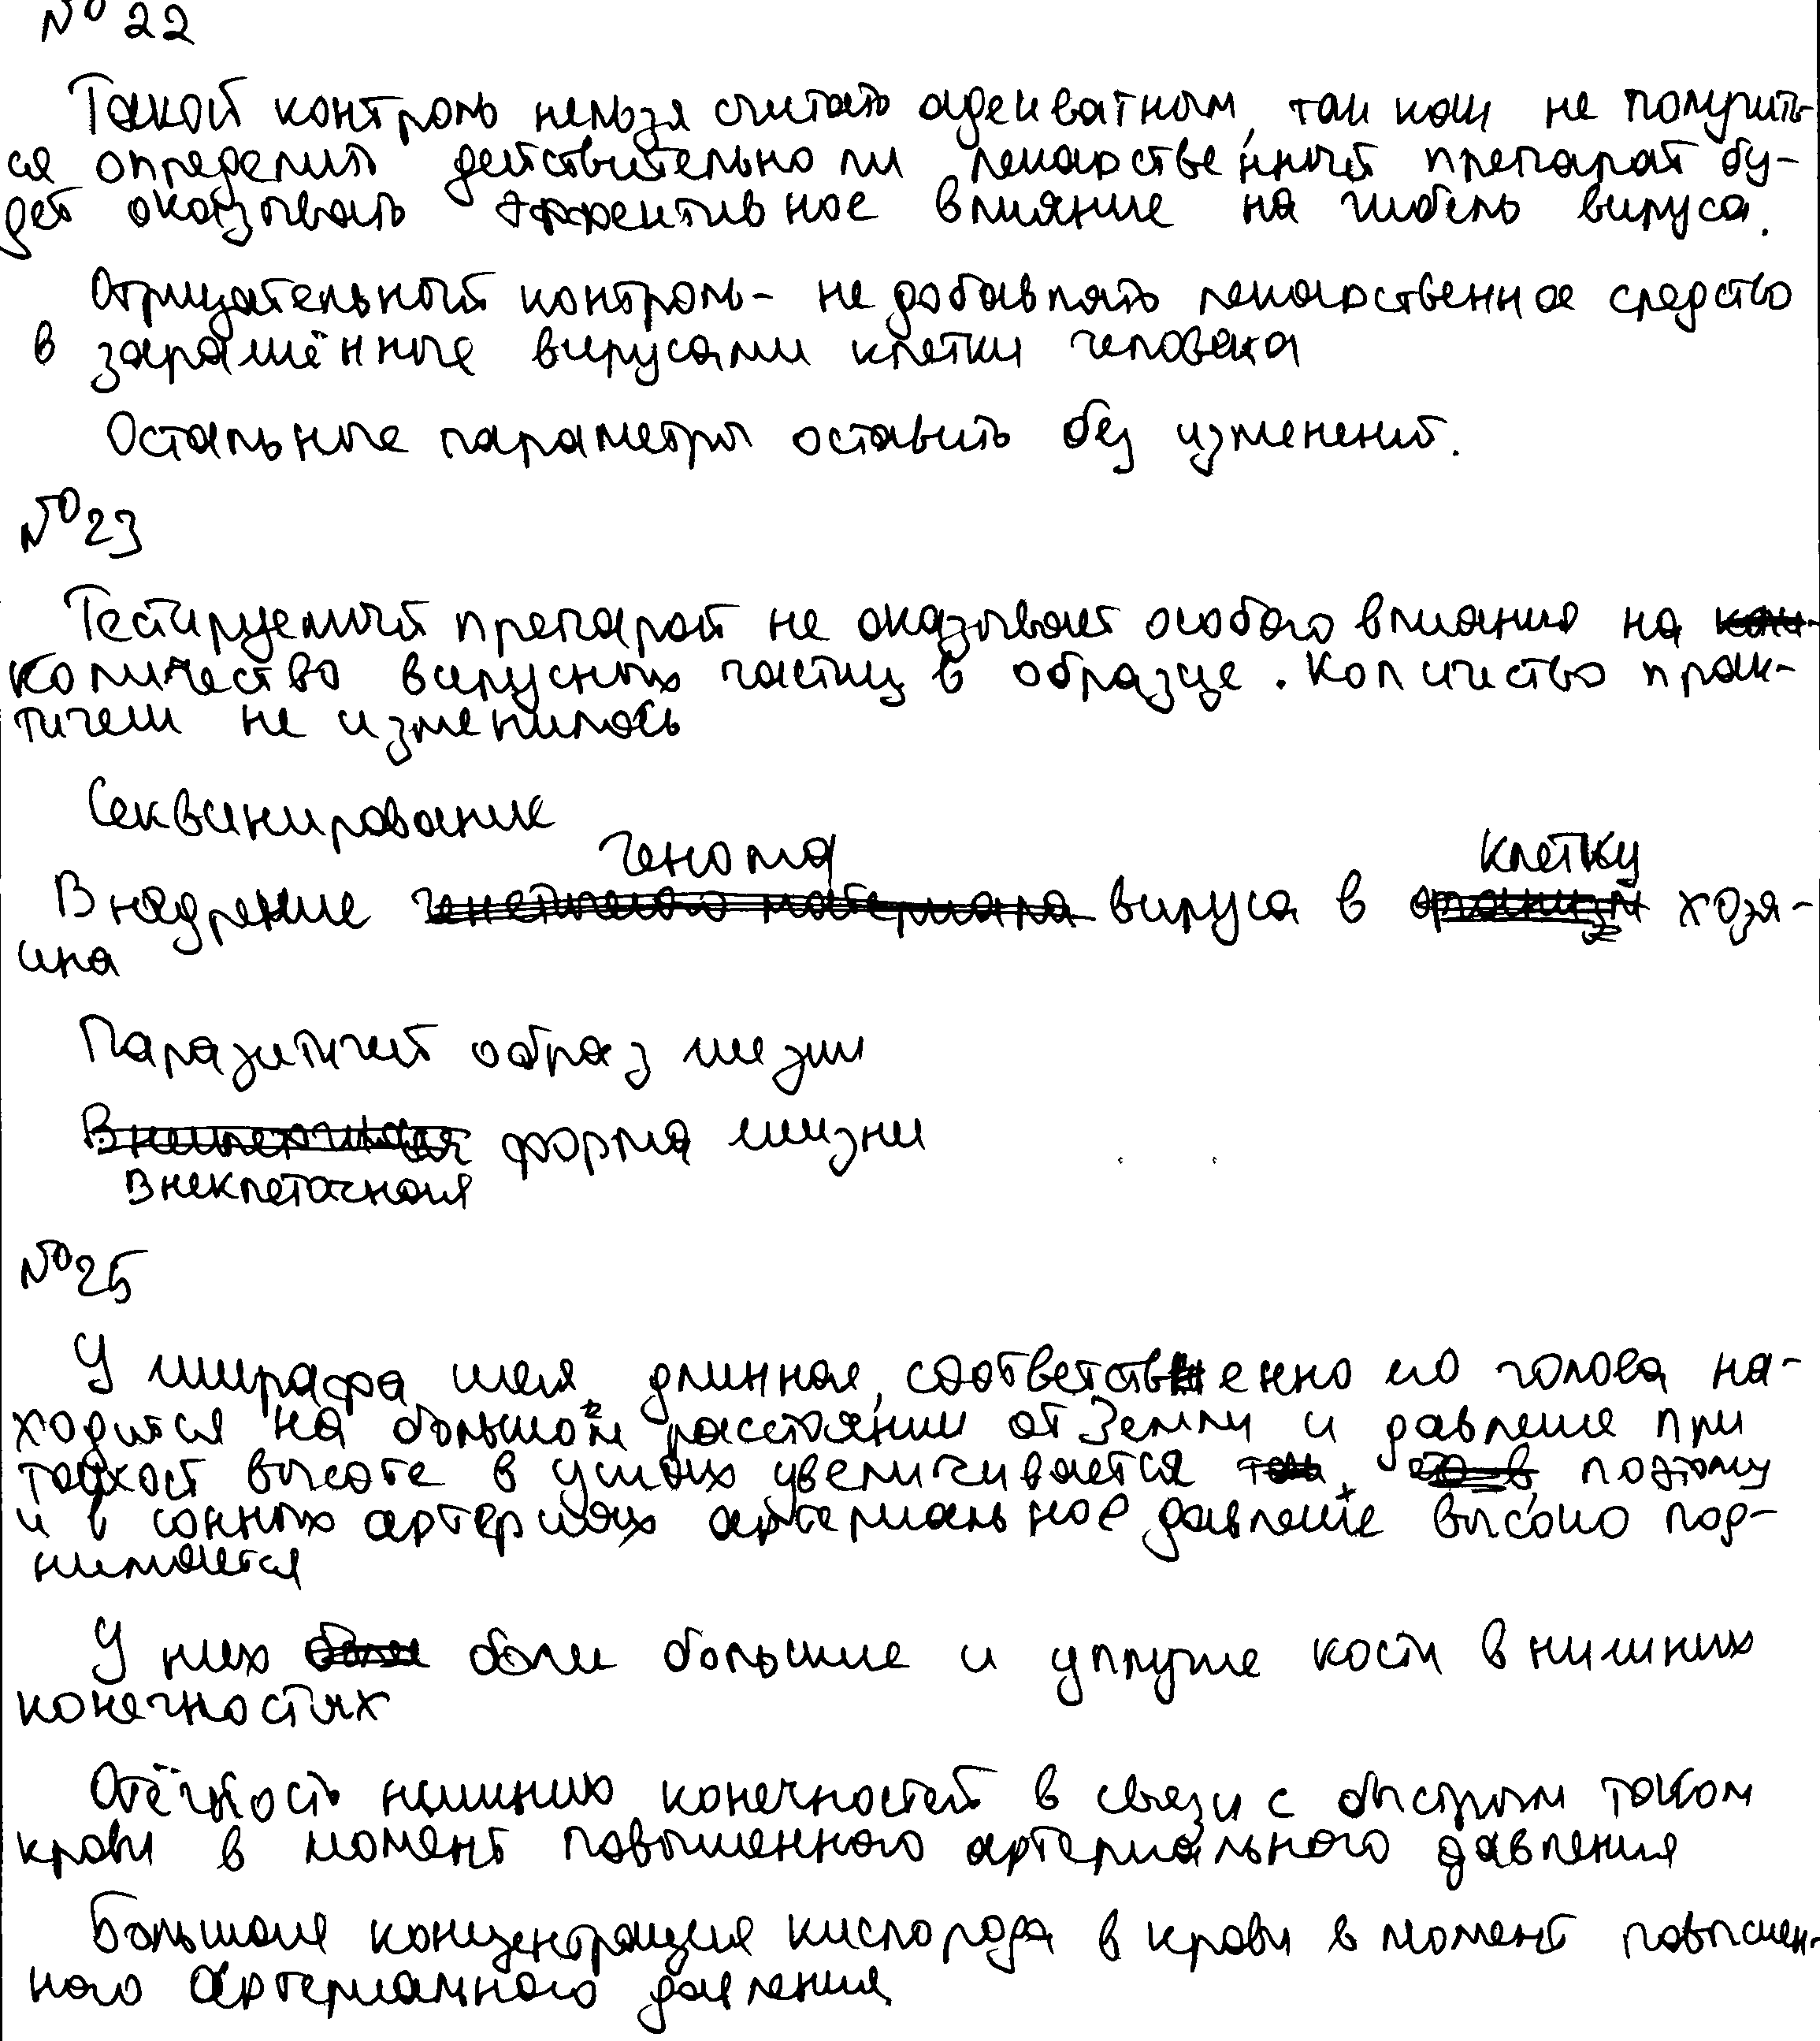 № 22
Такой контроль нельзя считать адекватным, так как не получить-
ся определить действительно ли лекарственный препарат бу-
дет оказывать эффективное влияние на гибель вируса.
Отрицательный контроль - не добавлять лекарственное средство
в заражённые вирусами клетки человека
Остальные параметры оставить без изменений.
№ 23
Тестируемый препарат не оказывает особого влияния на
количество вирусных частиц в образце. Количество прак-
тичеки не изменилось
Секвинирование
генома клетку
Внедрение вируса в хозя-
ина
Паразитичей образ жизни
форма жизни
Внеклеточная
№ 25
У жирафа шея длинная, соответственно его голова на-
ходится на большом расстоянии от Земли и давлеие при
такой высоте в ушах увеличивается, поэтому
и в сонных артериях артериальное давление высоко под-
нимается
У них боле большие и уплуже кости в нижних
конечностях
Отёчность нижних конечностей в связи с быстрым током
крови в момент повышенного артериального давления
Большая концентрация кислорода в крови в момент повышен-
ного артериального давления